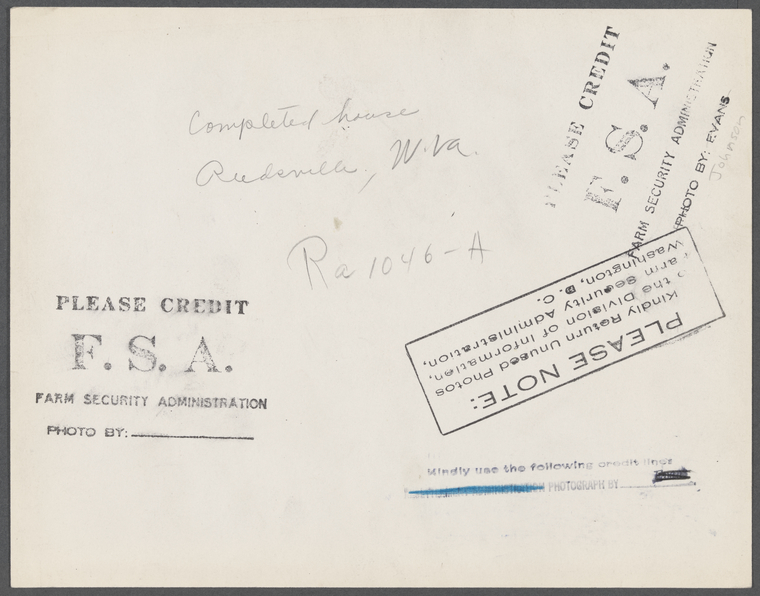 Completed house
Reedsville, W.Va.
Ra 1046-A
PLEASE CREDIT
F. S. A.
FARM SECURITY ADMINISTRATION
PHOTO BY: EVANS
Johnson
PLEASE CREDIT
F. S. A.
FARM SECURITY ADMINISTRATION
PHOTO BY:
PLEASE NOTE:
Kindly Return Unused Photos
to the Division of Information,
Farm Security Administration,
Washington, D. C.
Kindly use the following credit line:
ADMINISTRATION PHOTOGRAPH BY